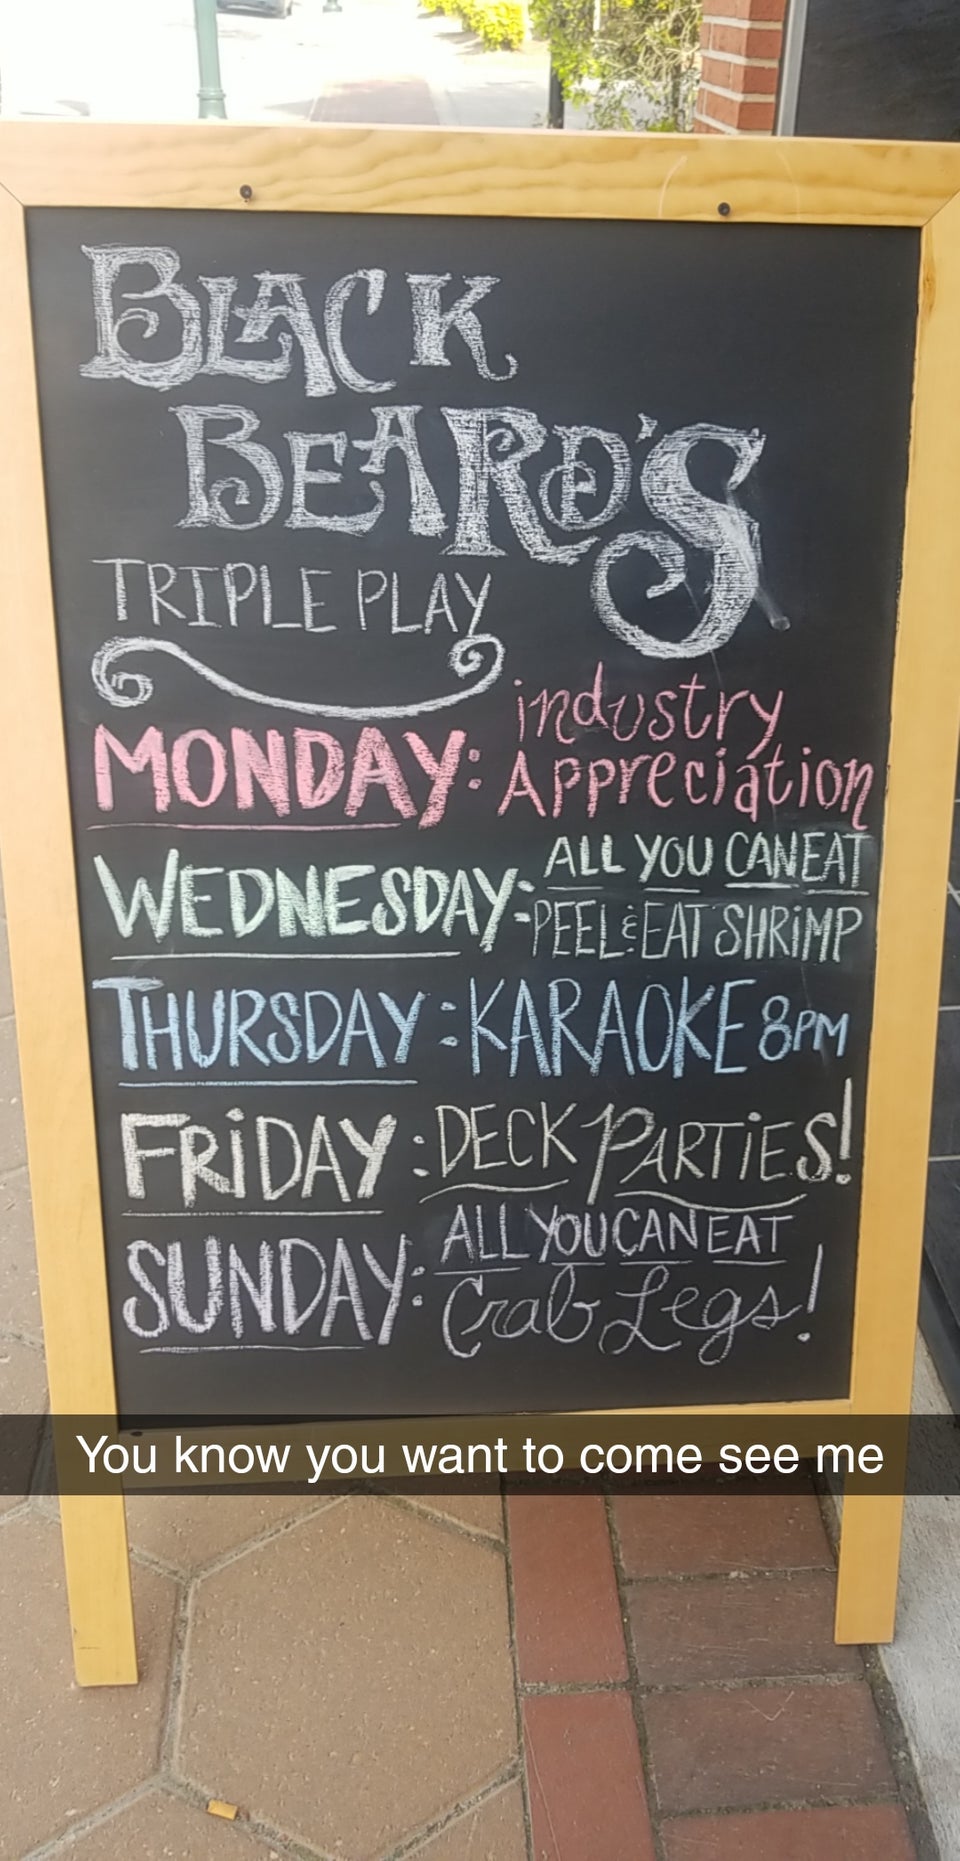 BLACK
BEARD'S
TRIPLE PLAY
MONDAY: industry
Appreciation
WEDNESDAY: ALL YOU CAN EAT
PEEL & EAT SHRiMP
THURSDAY: KARAOKE 8PM
FRiDAY: DECK PARTiES!
SUNDAY: ALL YOU CAN EAT
Crab Legs!
You know you want to come see me